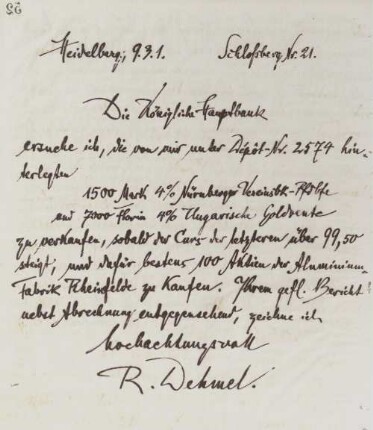 Heidelberg, 9.3.1. Schloßberg Nr. 21.
Die Königliche Hauptbank
ersuche ich, die von mir unter Depôt-Nr. 2574 hin-
terlegten
1500 Mark 4% Nürnberger Vereinsbk-Pfdbfe
und 7000 Florin 4% Ungarische Goldrente
zu verkaufen, sobald der Curs der letzteren über 99,50
steigt, und dafür bestens 100 Aktien der Aluminium-
Fabrik Rheinfelde zu kaufen. Ihrem gefl. Bericht
nebst Abrechnung entgegensehend, zeichne ich
hochachtungsvoll
R. Dehmel.